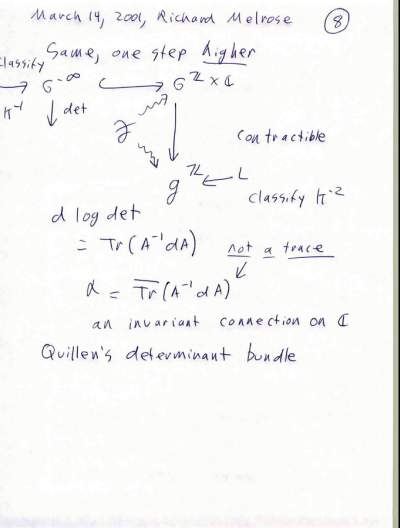 March 14, 2001, Richard Melrose
8
Same, one step higher
Classify
K⁻¹ → G^-∞ ↪ G^ℤ × ℂ
↓ det
contractible
g^ℤ ← L
classify K⁻²
d log det
= Tr(A⁻¹dA) not a trace
α = T̅r̅(A⁻¹dA)
an invariant connection on ℂ
Quillen's determinant bundle